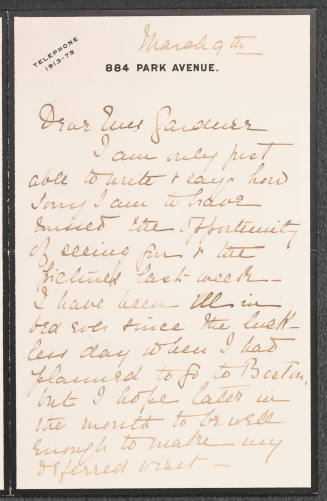 TELEPHONE
1913-79
March 9th
884 PARK AVENUE.
Dear Mrs Gardner
I am only just
able to write & say how
sorry I am to have
missed the opportunity
of seeing you & the
pictures last week –
I have been ill in
bed ever since the luck-
less day when I had
planned to go to Boston,
but I hope later in
the month to be well
enough to make my
deferred visit –